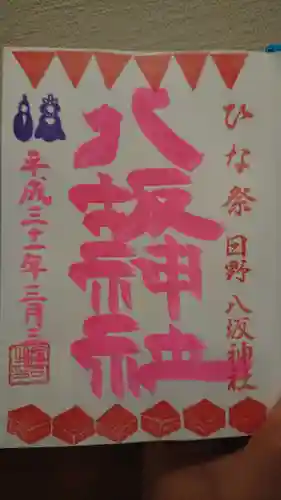 ひな祭 日野 八坂神社
八坂神社
平成三十一年 三月三